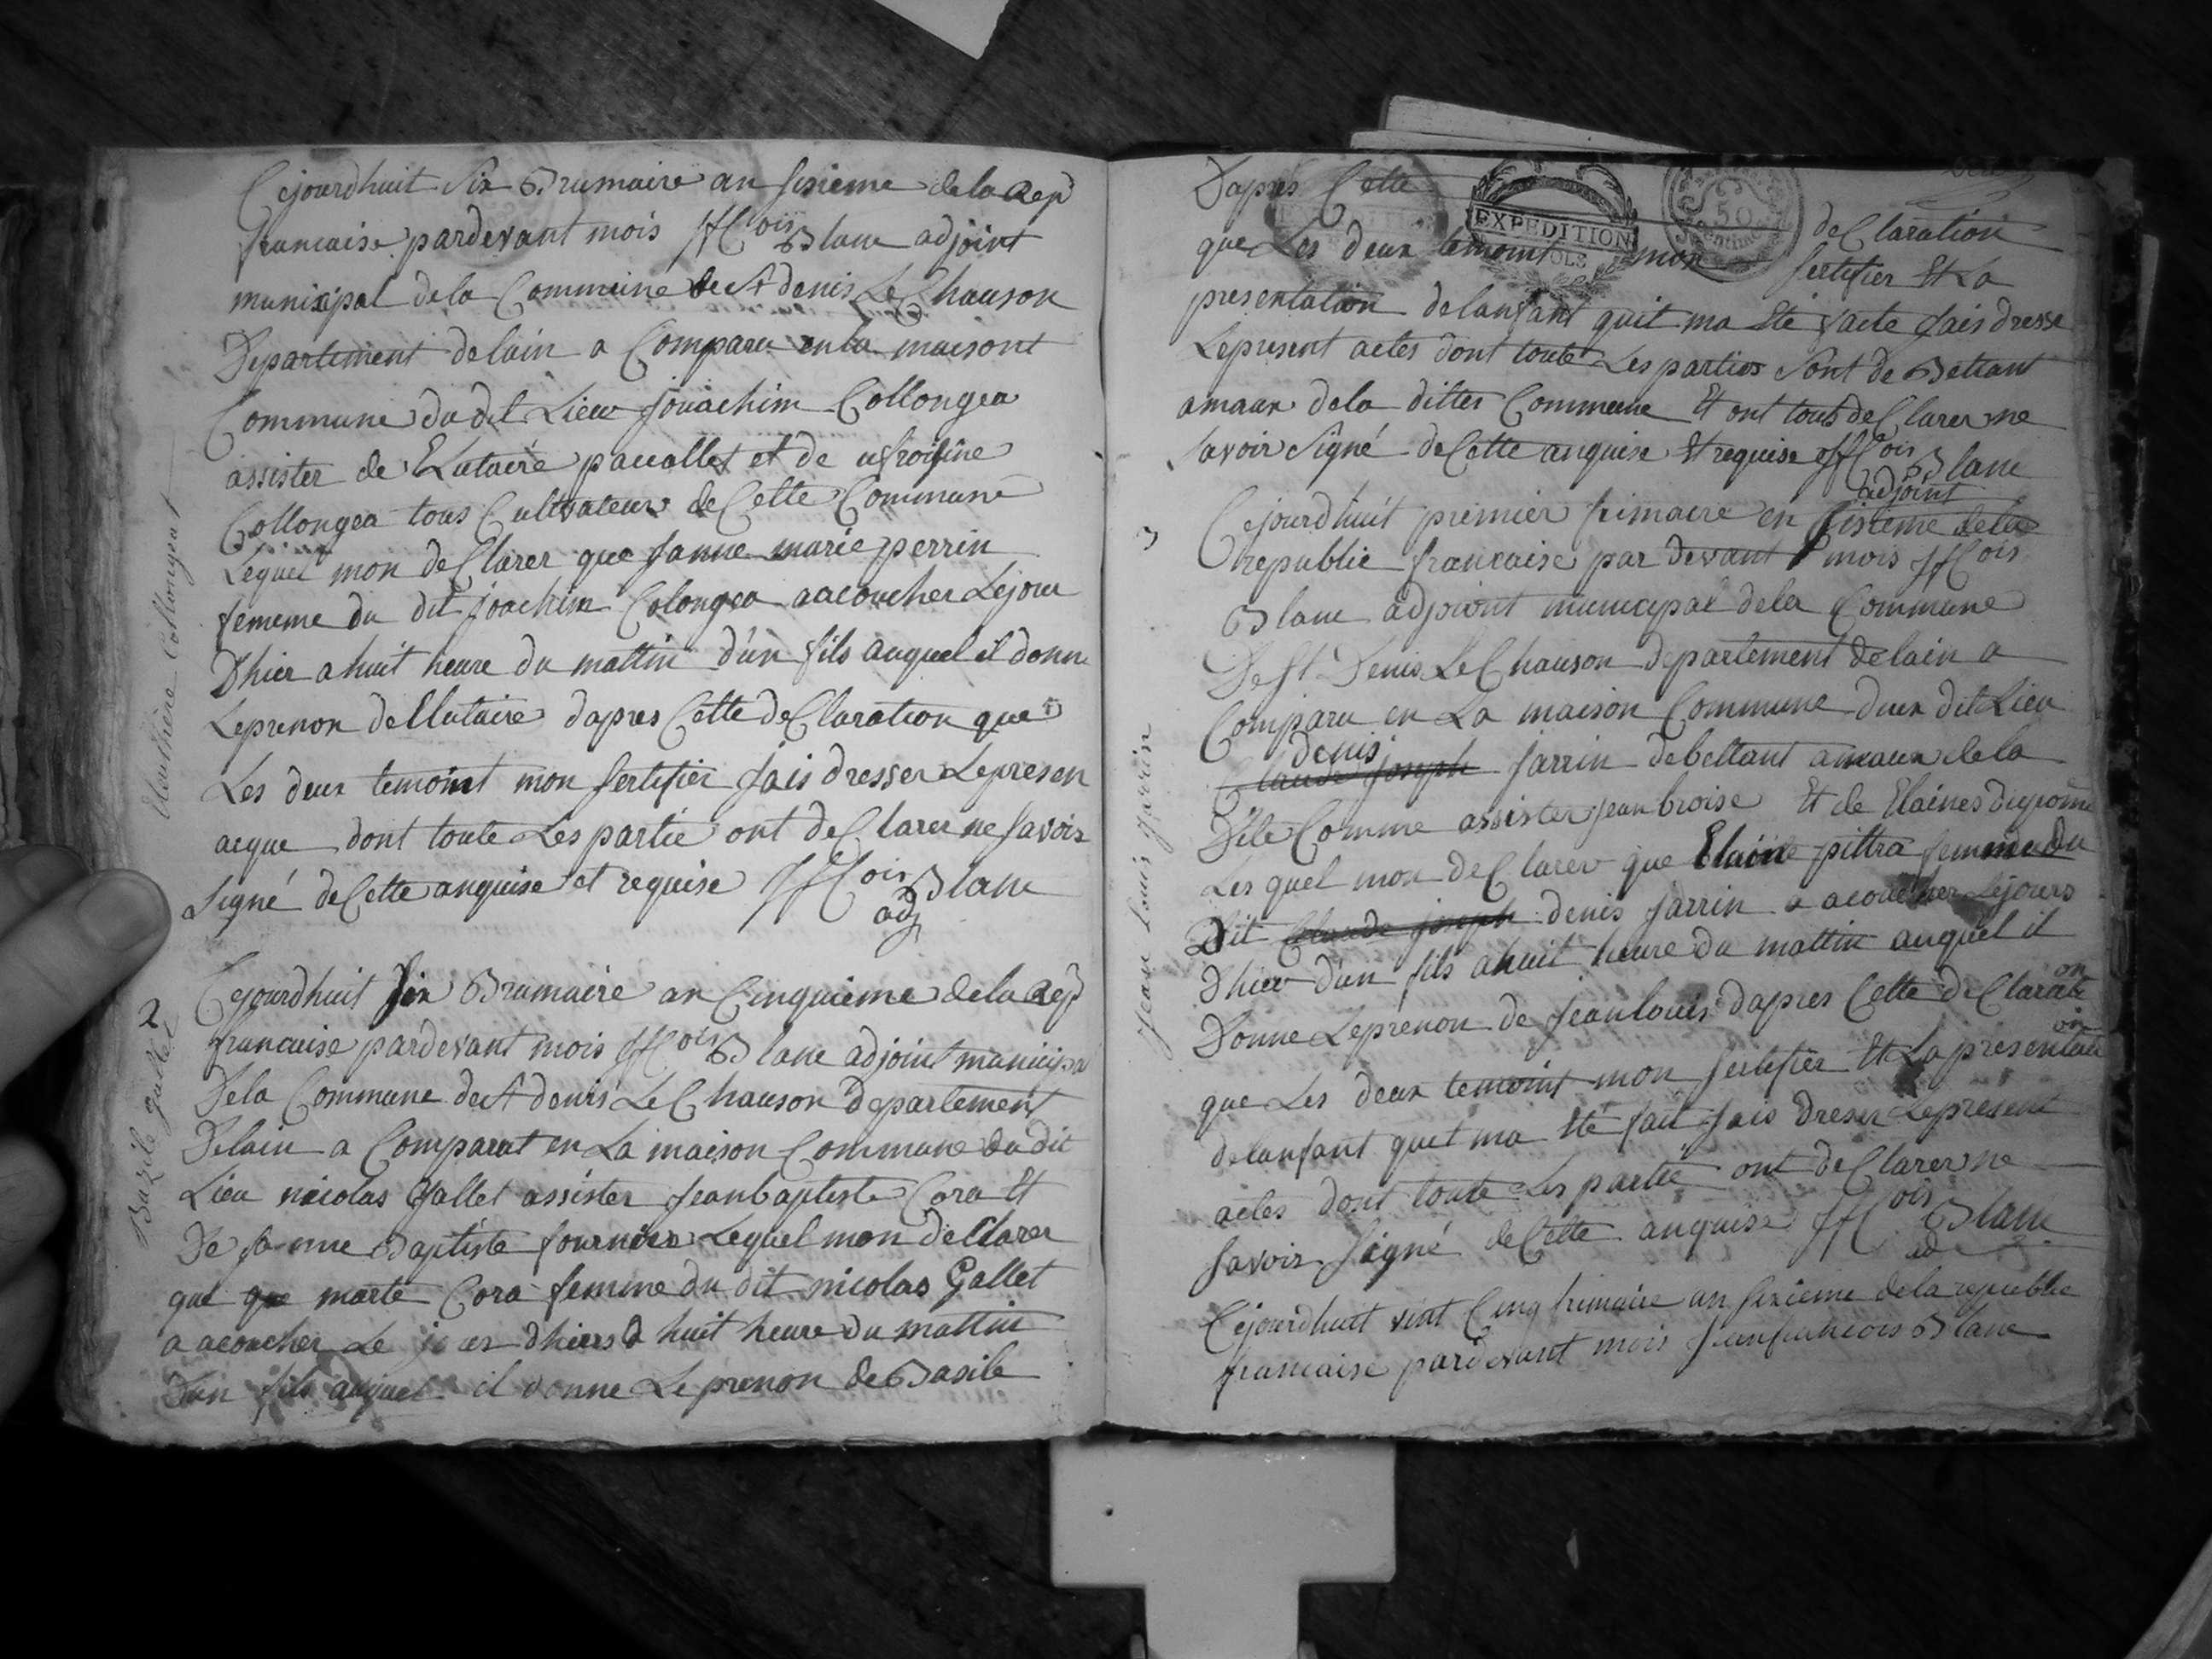 Cejourdhuit Six Brumaire an sixieme dela Rep
francaise pardevant mois Blanc adjoint
munisipal dela Commune de St denis Le Chauson
Departement delain a Comparu en la maisont
Commune du dit Lieu joüachim Collongea
assister de Elutaire pauallet et de
Collongea tous Cultivateur de Cette Commune
Lequel mon deClarer que janne marie perrin
fememe du dit joachim Colongea a acoucher Lejour
Dhier a huit heure du mattin d'un fils auquel il donne
Leprenon de Elutaire dapres Cette deClaration que
Les deux temoint mon sertifier fais dresser Lepresen
acque dont toute Les partie ont deClarer ne savoir
Signé deCette anquise et requise Blanc
adj
Collongeat
2
Cejourdhuit six Brumaire an Cinquieme dela Rep
francaise pardevant mois Blanc adjoint municipa
Dela Commune de St denis Le Chauson departement
Delain a Comparut en La maison Commune du dit
Lieu nicolas Gallet assister jeanbaptiste Cora Et
De janne Baptiste fournier Lequel mon deClarer
que marte Cora femme du dit nicolas Gallet
a acoucher Le jour dhiers a huit heure du mattin
Dun fils auquel il donne Le prenon de Basile
Bazile Gallet
Dapres Cette deClaration
EXPEDITION
50
que Les deux temoint mon sertifier Et La
presentation delanfant quit ma Eté facte fais dresse
Lepresent actes dont toute Les parties Sont de Bettant
amaux dela dittes Commune Et ont tous deClarer ne
savoir Signé deCette anquise Et requise Blanc
adjoint
3
Cejourdhuit premier frimaire en sisieme dela
republic francaise par devant mois
Blanc adjoint municipal dela Commune
De St Denis Le Chauson departement delain a
Comparu en La maison Commune duex dit Lieu
denis
Claude joseph jarrin debettant amaux dela
Dite Comme assister jean broise Et de Elaines
Les quel mon deClarer que Elaine pittra femme du
Dit Claude joseph denis jarrin a acoucher Lejours
Dhier d'un fils ahuit heure du mattin auquel il
Donne Leprenon de jeanlouis dapres Cette deClaration
que Les deux temoint mon sertifier Et La presentation
delanfant quet ma Eté fait fais dreser Lepresent
actes dont toute Les partie ont deClarer ne
savoir signé deCette anquise Blanc
ad
jean louis jarrin
Cejourdhuit vint Cinq frimaire an sixieme dela republic
francaise pardevant mois jeanfrancois Blanc